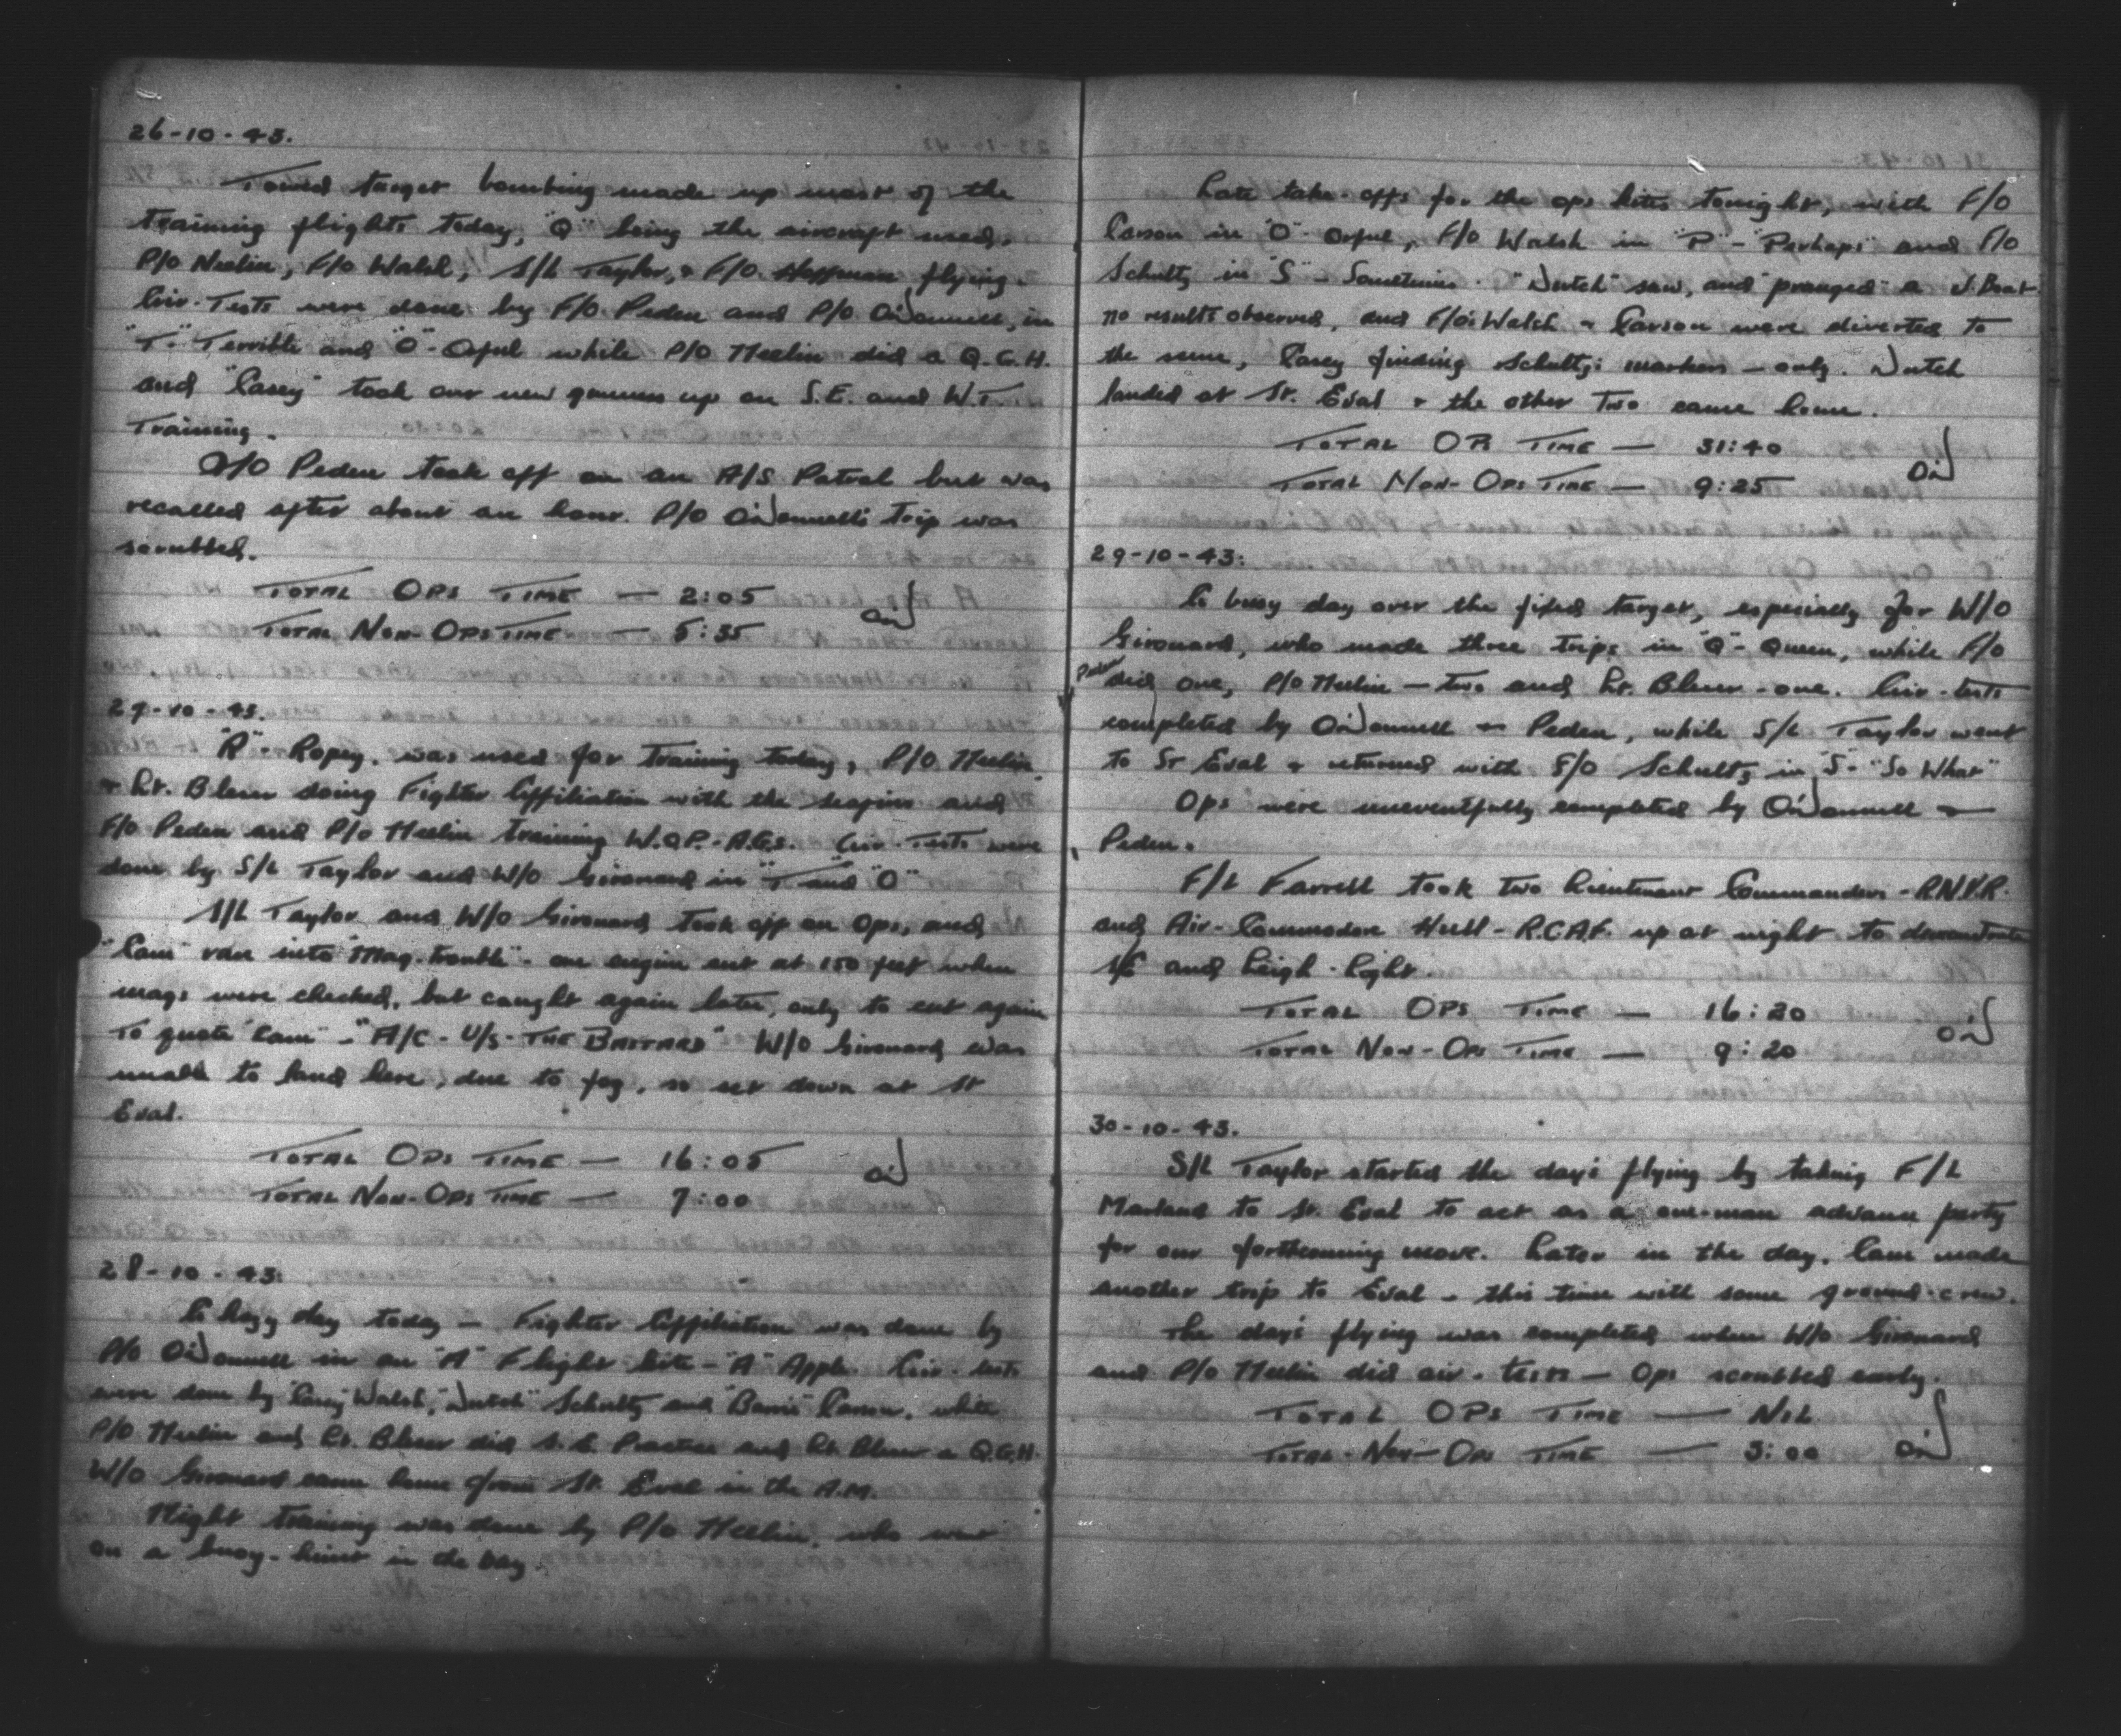 26-10-43.
Towed target bombing made up most of the
training flights today, "Q" being the aircraft used,
P/O Neelin, F/O Walsh, S/L Taylor, & F/O. Hoffman flying.
Air-Tests were done by F/O. Peden and P/O O'Donnell, in
"T"- Terrible and "O"- Orful while P/O Neelin did a Q.G.H.
and "Casey" took our new gunners up on S.E. and W.T.
Training.
F/O Peden took off on an A/S Patrol but was
recalled after about an hour. P/O O'Donnell's trip was
scrubbed.
TOTAL OPS TIME — 2:05
TOTAL NON-OPS TIME — 5:35
27-10-43.
"R"- Ropey, was used for training today, P/O Neelin
& Lt. Bleur doing Fighter Affiliation with the and
F/O Peden and P/O Neelin training W.O.P.-A.G.s. Air-Tests were
done by S/L Taylor and W/O Girouard in "T" and "O"
S/L Taylor and W/O Girouard took off on Ops, and
"Cam" ran into "Mag-trouble"- one engine cut at 150 feet when
mags were checked, but caught again later, only to cut again
To quote "Cam" - "A/C - U/S - THE BASTARD" W/O Girouard was
unable to land here, due to fog, so set down at St
Eval.
TOTAL OPS TIME — 16:05
TOTAL NON-OPS TIME — 7:00
28-10-43:
A hazy day today — Fighter Affiliation was done by
P/O O'Donnell in an "A" Flight kite - "A" Apple. Air-tests
were done by "Casey" Walsh, "Dutch" Schultz and "Barrie" Carson, while
P/O Neelin and Lt. Bleur did S.E. Practice and Lt. Bleur a Q.G.H.
W/O Girouard came home from St. Eval in the A.M.
Night training was done by P/O Neelin, who went
on a buoy-hunt in the bay.
Late take-offs for the ops kites tonight, with F/O
Carson in "O"- Orful, F/O Walsh in "P"- "Perhaps" and F/O
Schultz in "S" - Sometimes. "Dutch" saw, and "pranged" a U.Boat
no results observed, and F/O's Walsh & Carson were diverted to
the scene, Casey finding Schultz's markers — only. Dutch
landed at St. Eval & the other two came home.
TOTAL OPs TIME — 31:40
TOTAL NON-OPS TIME — 9:25
29-10-43:
A busy day over the fixed target, especially for W/O
Girouard, who made three trips in "Q"- Queen, while F/O
Peden did one, P/O Neelin — two and Lt. Bleur - one. Air-tests
completed by O'Donnell & Peden, while S/L Taylor went
to St Eval & returned with F/O Schultz in "S"- "So What"
Ops were uneventfully completed by O'Donnell &
Peden.
F/L Farrell took two Lieutenant Commanders - R.N.V.R.
and Air-Commodore Hull - R.C.A.F. up at night to demonstrate
S/E and Leigh-light.
TOTAL OPS TIME — 16:20
TOTAL NON-OPS TIME — 9:20
30-10-43.
S/L Taylor started the day's flying by taking F/L
Marland to St. Eval to act as a one-man advance party
for our forthcoming move. Later in the day, Cam made
another trip to Eval - this time with some ground-crew.
The day's flying was completed when W/O Girouard
and P/O Neelin did air-tests — Ops scrubbed early.
TOTAL OPS TIME — NIL
TOTAL-NON-OPS TIME — 3:00